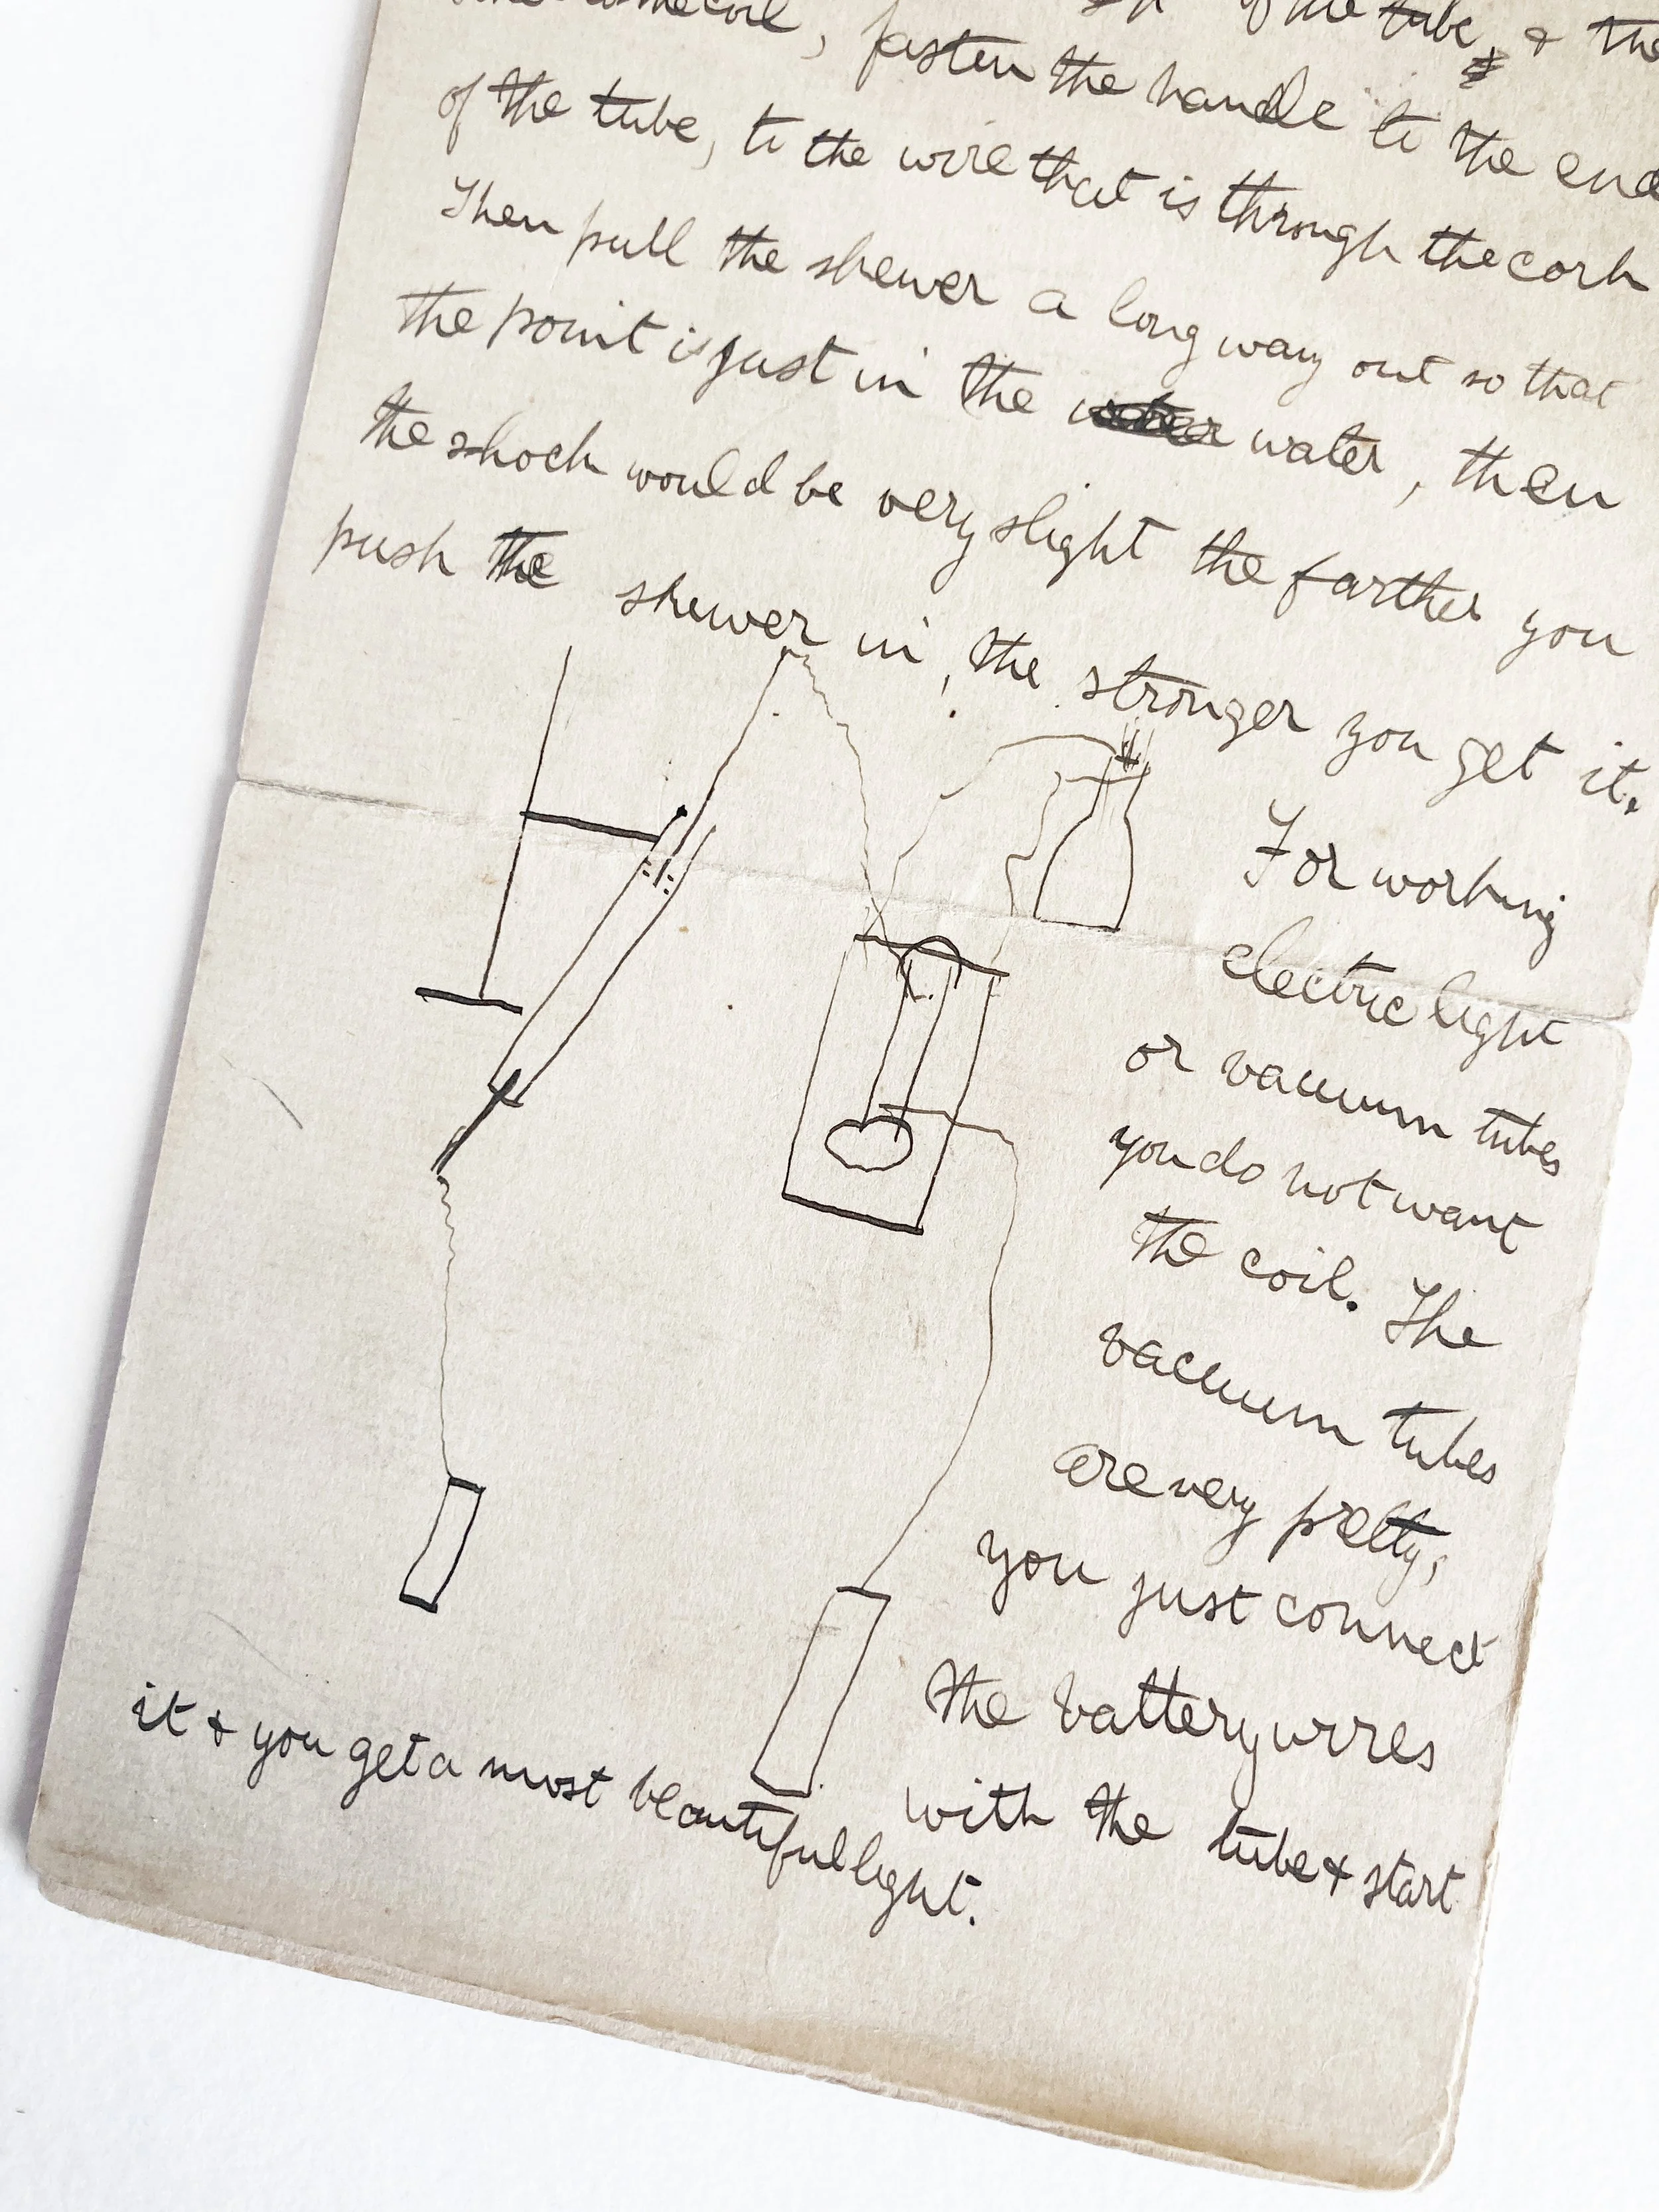 of the tube, & the
, fasten the handle to the end
of the tube, to the wire that is through the cork
Then pull the skewer a long way out so that
the point is just in the water, then
the shock would be very slight the farther you
push the skewer in, the stronger you get it.
For working
electric light
or vacuum tubes
you do not want
the coil. The
vacuum tubes
are very pretty,
you just connect
the battery wires
with the tube & start
it & you get a most beautiful light.